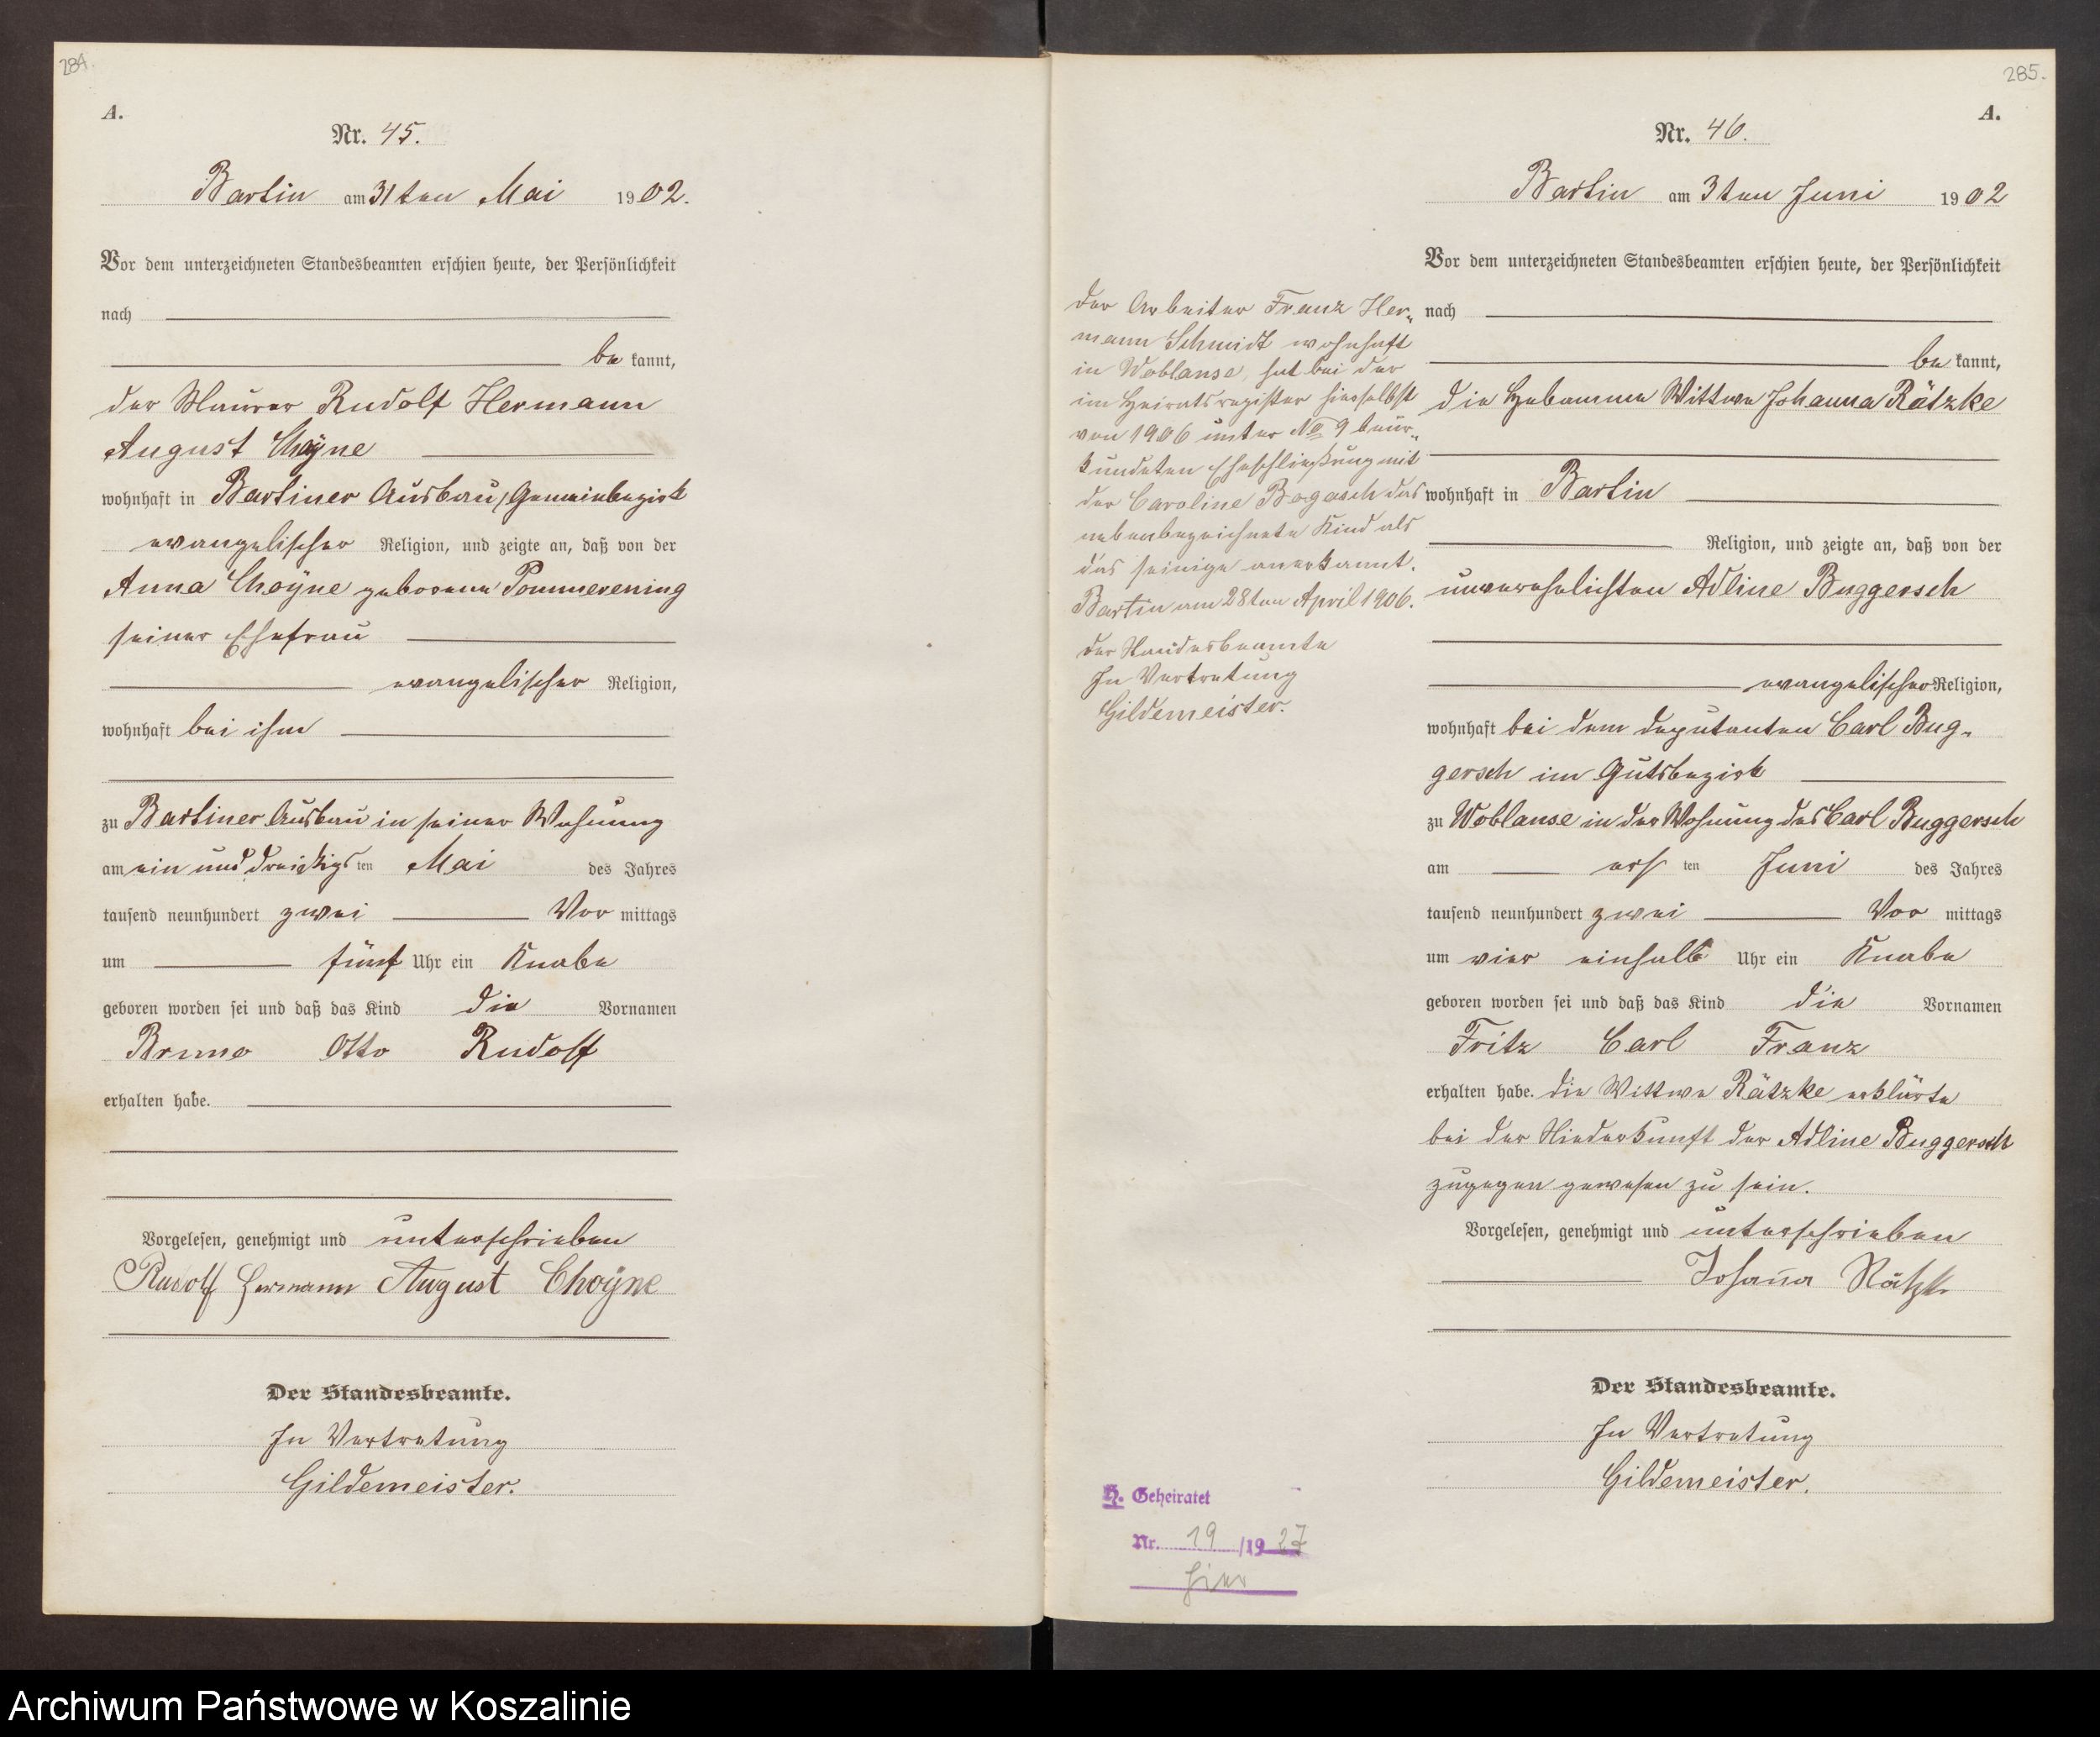 284.
A.
Nr. 45.
Bartin am 31ten Mai 1902.
Vor dem unterzeichneten Standesbeamten erschien heute, der Persönlichkeit
nach
be kannt,
der Maurer Rudolf Hermann
August Choÿne
wohnhaft in Bartiner Ausbau, Gemeinbezirk
evangelischer Religion, und zeigte an, daß von der
Anna Choÿne geborene Pommerening
seiner Ehefrau
evangelischer Religion,
wohnhaft bei ihm
zu Bartiner Ausbau in seiner Wohnung
am ein und dreißigsten Mai des Jahres
tausend neunhundert zwei Vor mittags
um fünf Uhr ein Knabe
geboren worden sei und daß das Kind die Vornamen
Bruno Otto Rudolf
erhalten habe.
Vorgelesen, genehmigt und unterschrieben
Rudolf Hermann August Choÿne
Der Standesbeamte.
In Vertretung
Gildemeister.
285.
A.
Nr. 46.
Bartin am 3ten Juni 1902
Vor dem unterzeichneten Standesbeamten erschien heute, der Persönlichkeit
nach
be kannt,
die Hebamme Wittwe Johanna Rätzke
wohnhaft in Bartin
Religion, und zeigte an, daß von der
unverehelichten Adline Buggersch
evangelischer Religion,
wohnhaft bei dem Deputanten Carl Bug-
gersch im Gutsbezirk
zu Woblanse in der Wohnung des Carl Buggersch
am ersten Juni des Jahres
tausend neunhundert zwei Vor mittags
um vier einhalb Uhr ein Knabe
geboren worden sei und daß das Kind die Vornamen
Fritz Carl Franz
erhalten habe. Die Wittwe Rätzke erklärte
bei der Niederkunft der Adline Buggersch
zugegen gewesen zu sein.
Vorgelesen, genehmigt und unterschrieben
Johanna Rätzk
Der Standesbeamte.
In Vertretung
Gildemeister.
Der Arbeiter Franz Her-
mann Schmidt wohnhaft
in Woblanse, hat bei der
im Heiratsregister hierselbst
von 1906 unter No 9 beur-
kundeten Eheschließung mit
der Caroline Bogasch das
nebenbezeichnete Kind als
das seinige anerkannt.
Bartin am 28ten April 1906.
Der Standesbeamte
In Vertretung
Gildemeister.
H. Geheiratet
Nr. 19 /1927
hier
Archiwum Państwowe w Koszalinie